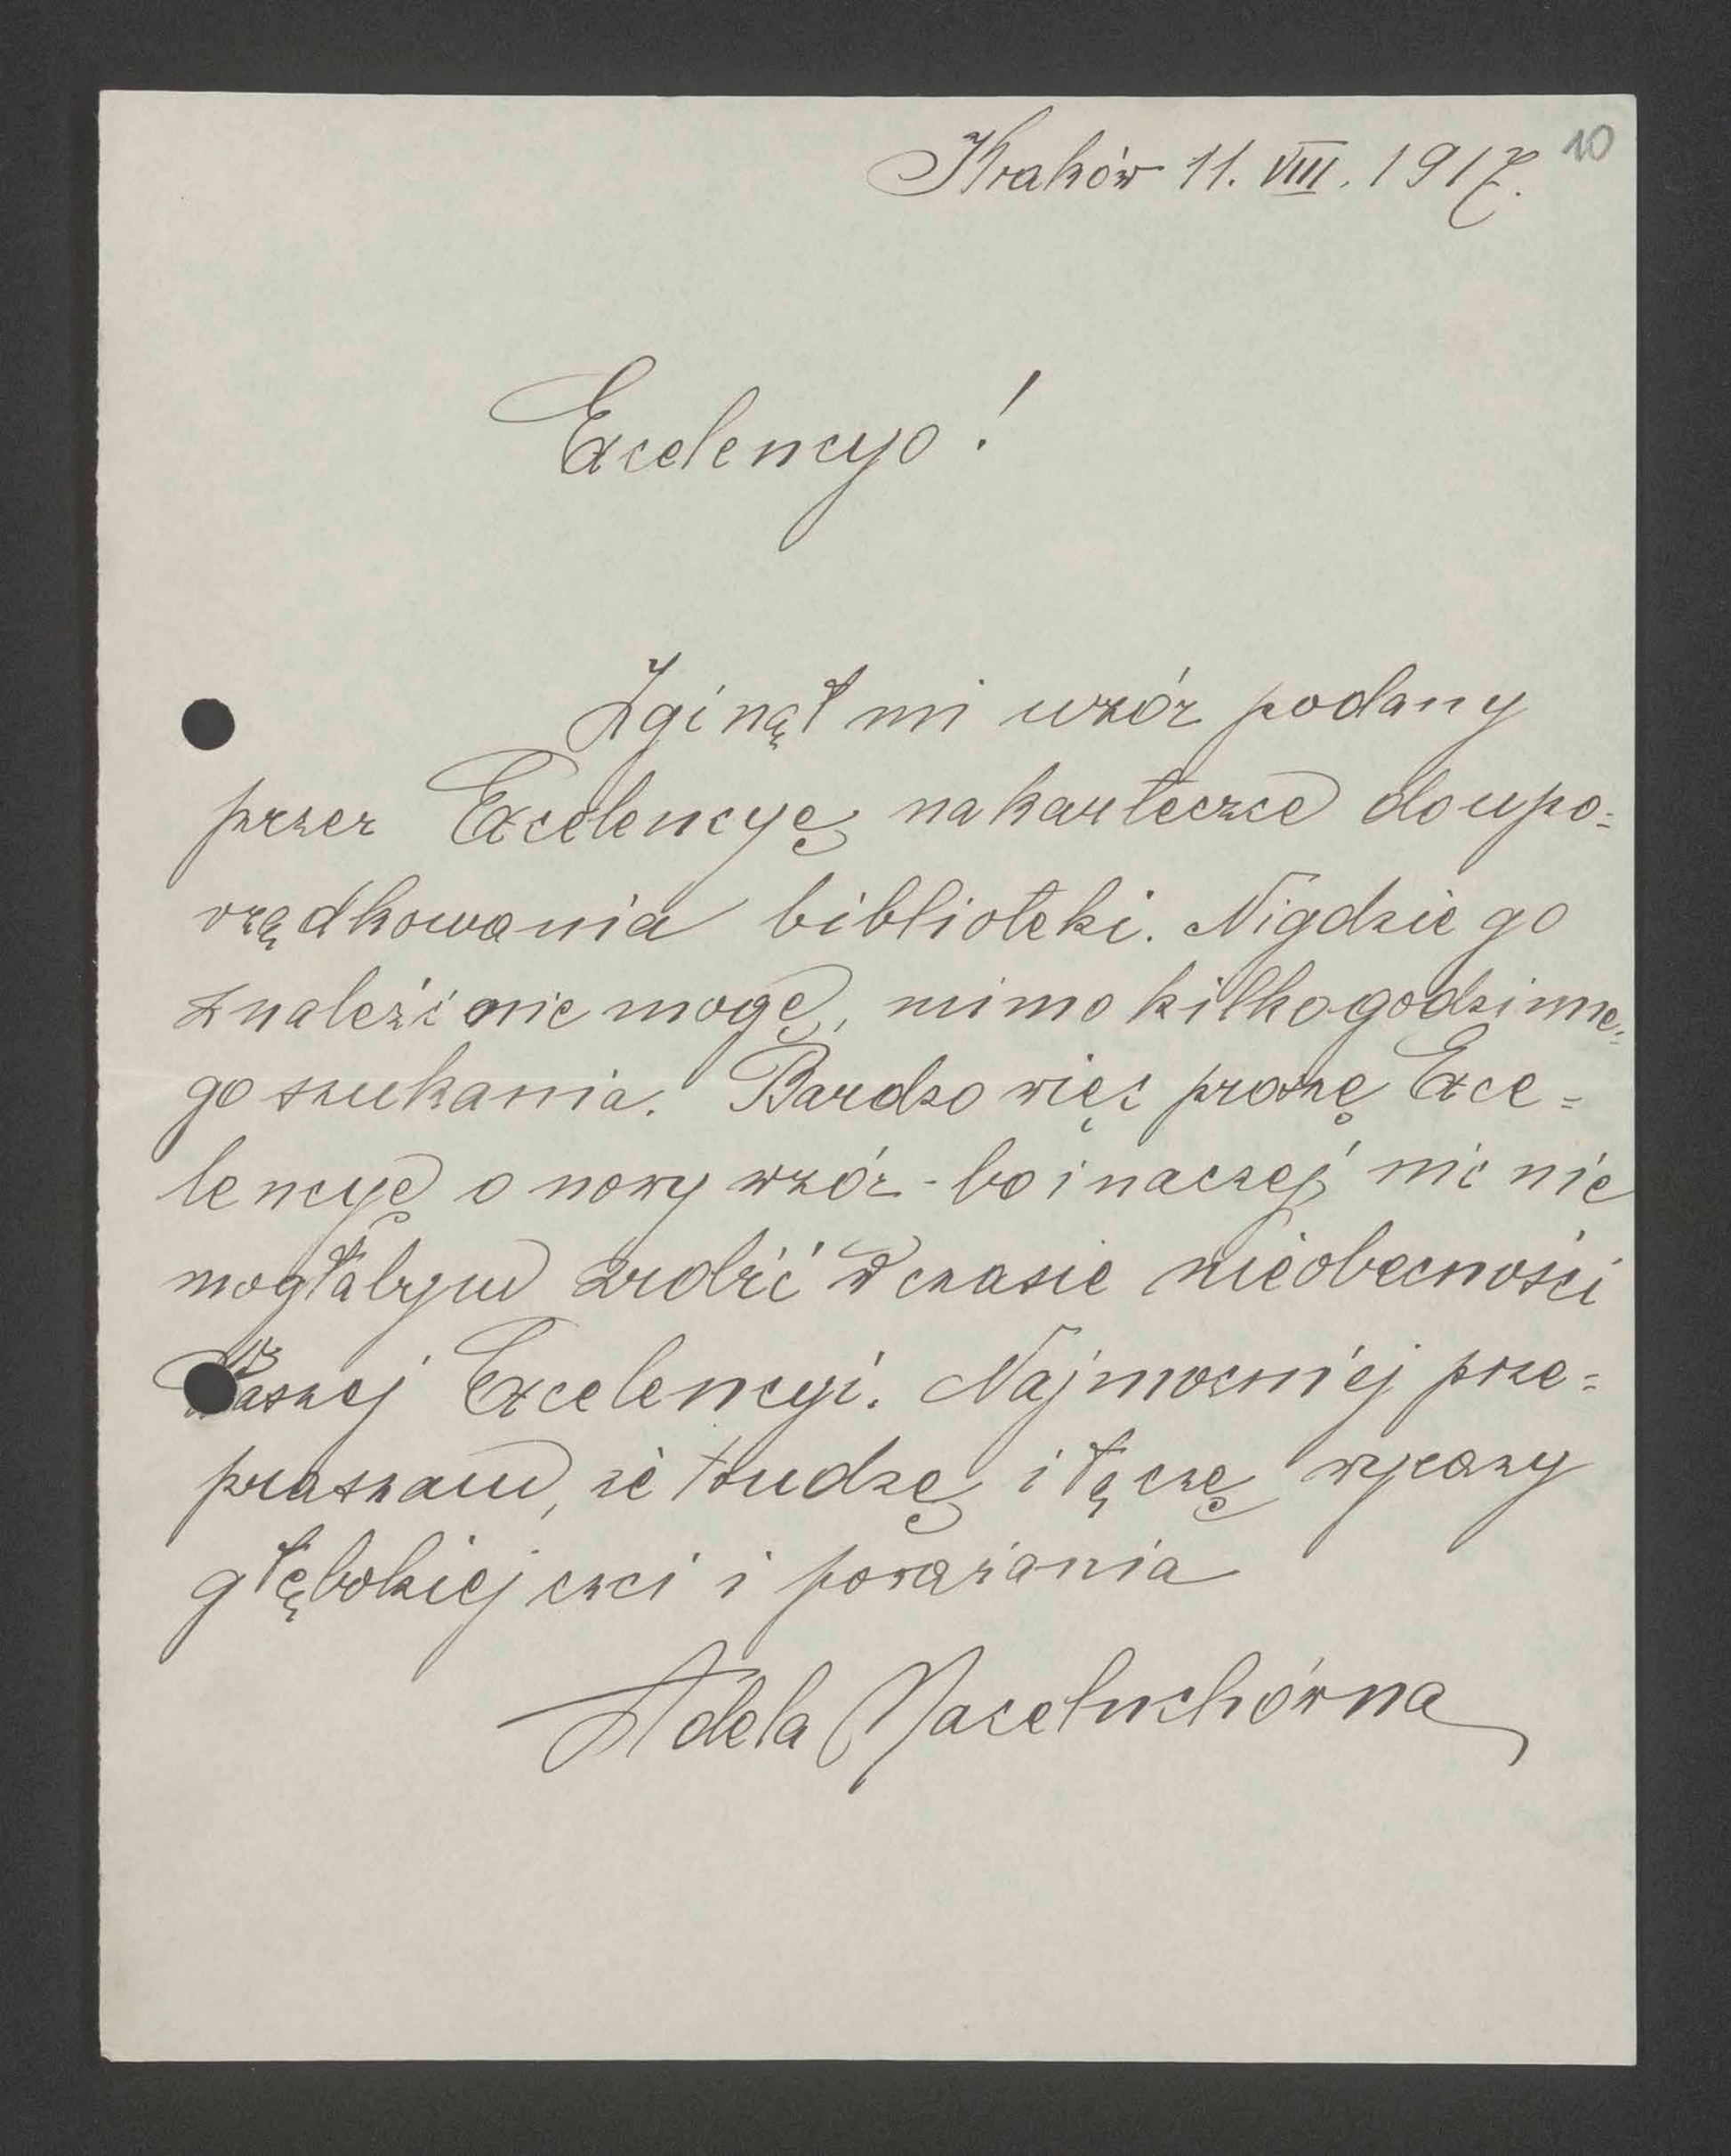 10
Kraków 11. VIII. 1917.
Excelencyo!
Zginął mi wzór podany
przez Excelencyę na karteczce do upo=
rządkowania biblioteki. Nigdzie go
znaleźć nie mogę, mimo kilkogodzinne=
go szukania. Bardzo więc proszę Exce=
lencyę o nowy wzór - bo inaczej nic nie
mogłabym zrobić w czasie nieobecności
Waszej Excelencyi. Najmocniej prze=
praszam, że trudzę i łączę wyrazy
głębokiej czci i poważania
Adela